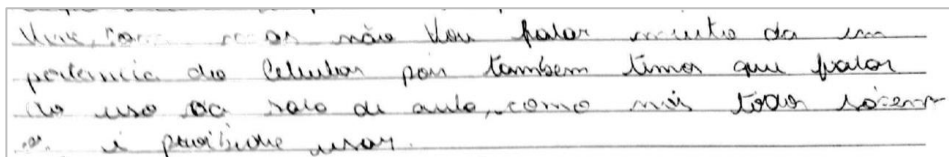 mas não vou falar muito da im
portancia do Celular pois tambem timos que falar
do uso na sala de aula, como nós todos sabem
os é proibido usar.